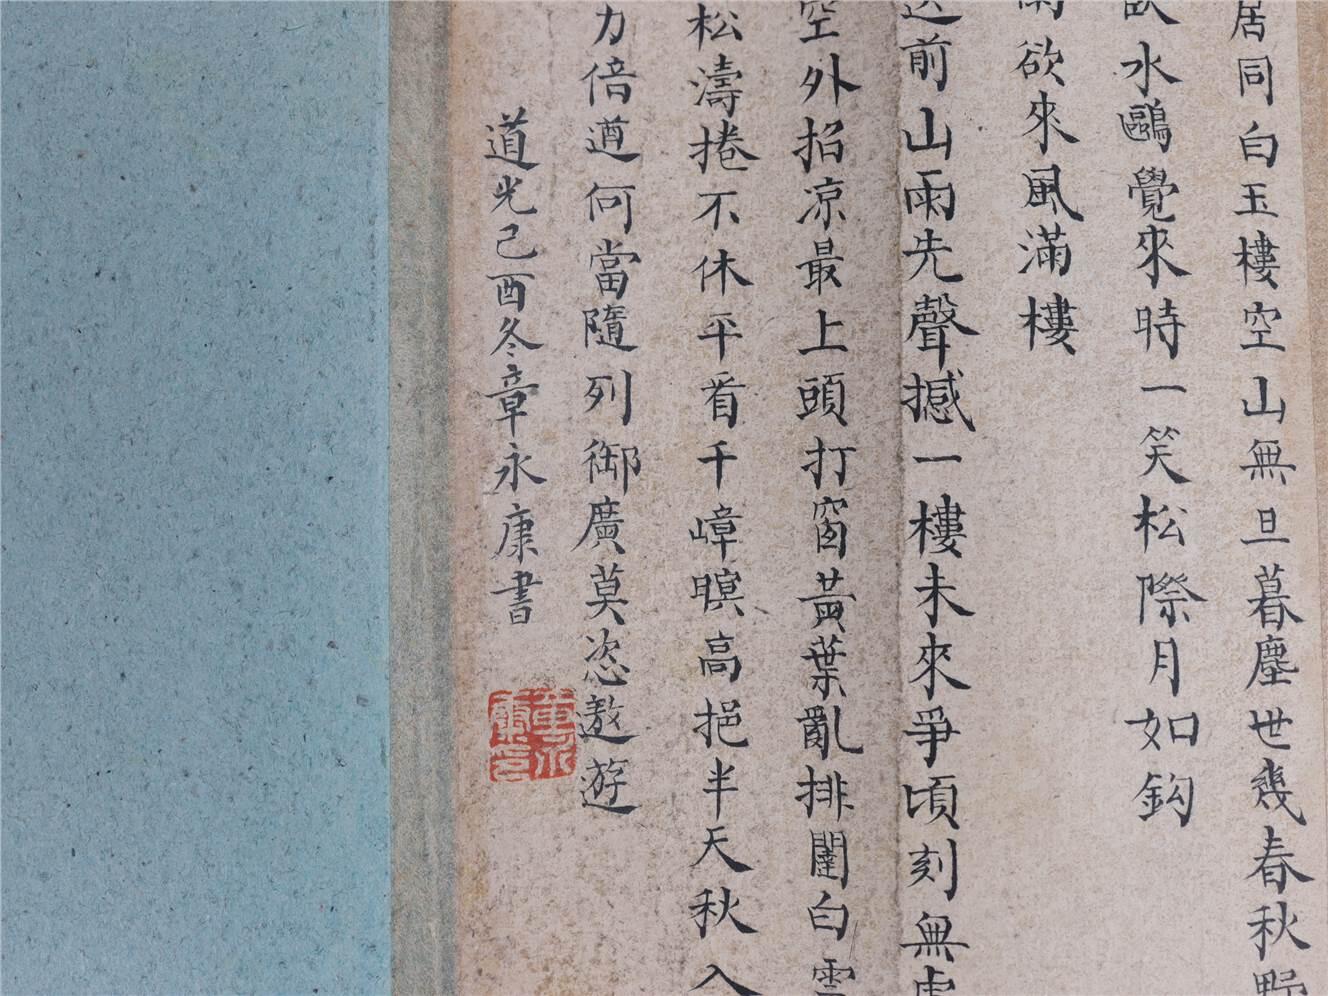 居同白玉樓空山無旦暮塵世幾春秋野
水鷗覺來時一笑松際月如鈎
欲來風滿樓
前山雨先聲撼一樓未來爭頃刻無
空外招凉最上頭打窗黃葉亂排闥白雲
松濤捲不休平看千嶂暝高挹半天秋入
力倍遒何當隨列御廣莫恣遨遊
道光己酉冬章永康書